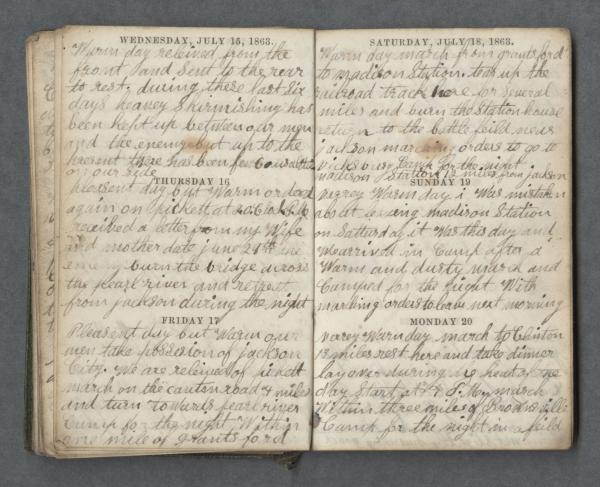 WEDNESDAY, JULY 15, 1863.
Warm day releived from the
front and sent to the rear
to rest, during these last six
days heavey Skirmishing has
been kept up between our men
and the enemy but up to the
present there has been few casualties
on our side
THURSDAY 16
pleasent day but Warm ordered
again on picket at 2 o clock P.M.
received a letter from my Wife
and mother date June 21st the
enemy burn the bridge across
the pearl river and retreat
from jackson during the night
FRIDAY 17
Pleasent day but Warm our
men take possesion of jackson
City. We are releived of pickett
march on the canton road 4 miles
and turn towards pearl river
Camp for the night Within
one mile of Grants ford
SATURDAY, JULY 18, 1863.
Warm day march from grants ford
to madison Station. tear up the
railroad track here for several
miles and burn the Station house
return to the battle feild near
jackson marching orders to go to
vicksburg Camp for the night
madison Station 12 miles from jackson
SUNDAY 19
verrey Warm day i Was mistaken
about leaving madison Station
on Satturday it Was this day and
We arrived in Camp after a
Warm and dusty march and
Camped for the night With
marching orders to leave next morning
MONDAY 20
verey Warm day march to Clinton
12 miles rest here and take dinner
lay over during the heat of the
day Start at 4 P. M. march
Within three miles of Brownsville
Camp for the night in a feild